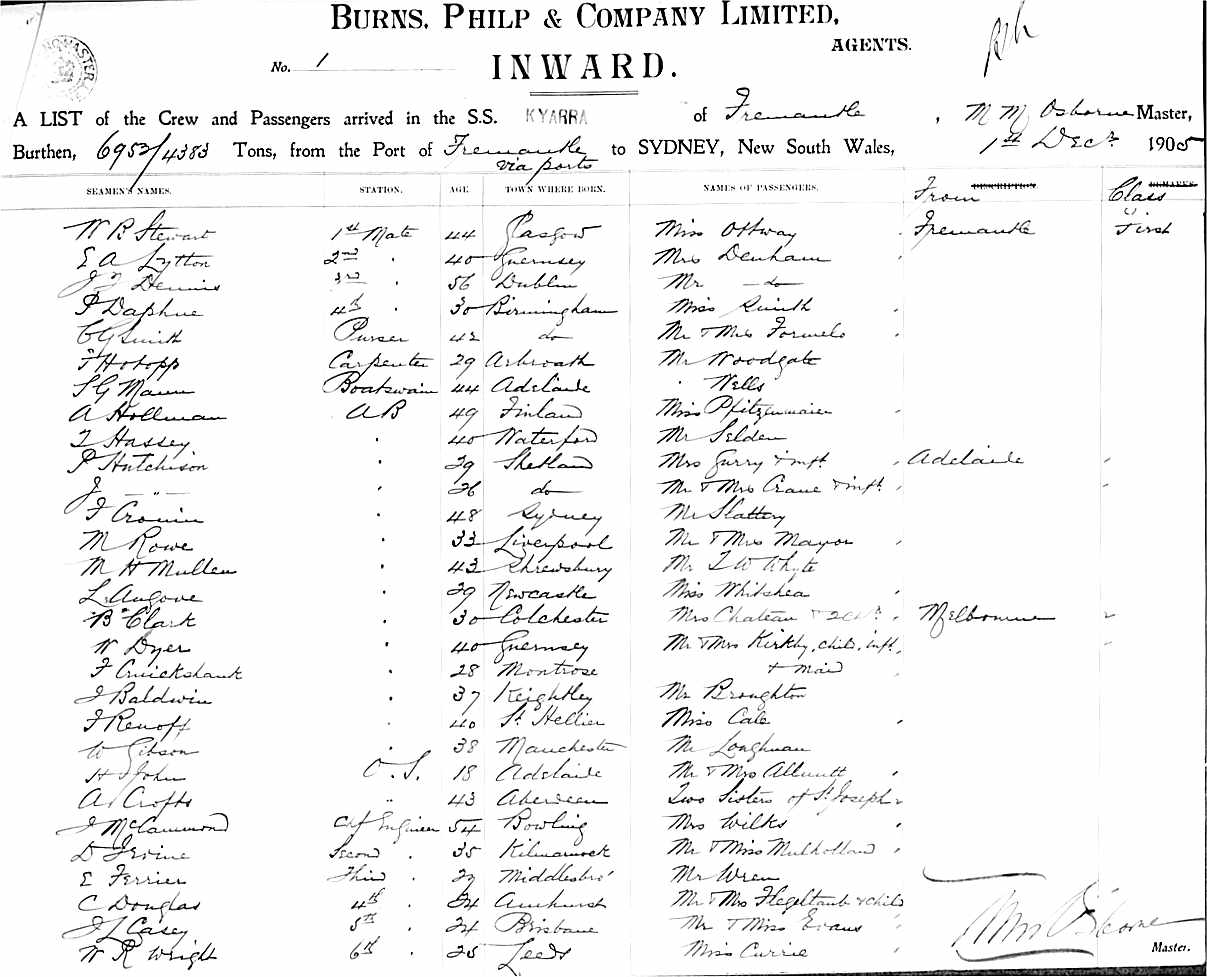 BURNS, PHILP & COMPANY LIMITED,
AGENTS.
No. 1
INWARD.
A LIST of the Crew and Passengers arrived in the S.S. KYARRA of Fremantle, M M Osborne Master,
Burthen, 6952/4383 Tons, from the Port of Fremantle to SYDNEY, New South Wales, 1st Decr 1905
via ports
SEAMEN'S NAMES. STATION. AGE. TOWN WHERE BORN. NAMES OF PASSENGERS. From DESCRIPTION. Class REMARKS.
W B Stewart 1st Mate 44 Glasgow Miss Ottway Fremantle First
E A Lytton 2nd " 40 Guernsey Mrs Denham
Dennis 3rd " 56 Dublin Mr — do
P Daphne 4th " 30 Birmingham Miss Smith
C G Smith Purser 42 do Mr & Mrs Formelo
F Hotopp Carpenter 29 Arbroath Mr Woodgate
S G Mann Boatswain 44 Adelaide " Wells
A Hollman AB 49 Finland Miss Pfitzenmaier
T Hassey " 40 Waterford Mr Selden
P Hutchison " 29 Shetland Mrs Gurry & inft Adelaide "
J — " — " 26 do Mr & Mrs Crane & inft "
F Cronin " 48 Sydney Mr Slattery
M Rowe " 33 Liverpool Mr & Mrs Mayor
M H Mullen " 43 Shrewsbury Mr T W Whyte
L Angove " 29 Newcastle Miss Whitshea
B Clark " 30 Colchester Mrs Chateau & 2 ch. Melbourne "
W Dyer " 40 Guernsey Mr & Mrs Kirkby, child, inft, "
F Cruickshank " 28 Montrose & maid
J Baldwin " 37 Keightley Mr Broughton
F Renoff " 40 St Hellier Miss Cale
W Gibson " 38 Manchester Mr Longhman
H St John O.S. 18 Adelaide Mr & Mrs Allnutt
A Crofts " 43 Aberdeen Two Sisters of St Joseph
J McCammond Chf Engineer 54 Bowling Mrs Wilks
D Irvine Second " 35 Kilmarnock Mr & Miss Mulholland
E Ferrier Third " 29 Middlesbro' Mr Wren
C Douglas 4th " 24 Amhurst Mr & Mrs Flegeltaub & child
J L Casey 5th " 24 Brisbane Mr & Miss Evans
W R Wright 6th " 25 Leeds Miss Currie
M M Osborne
Master.